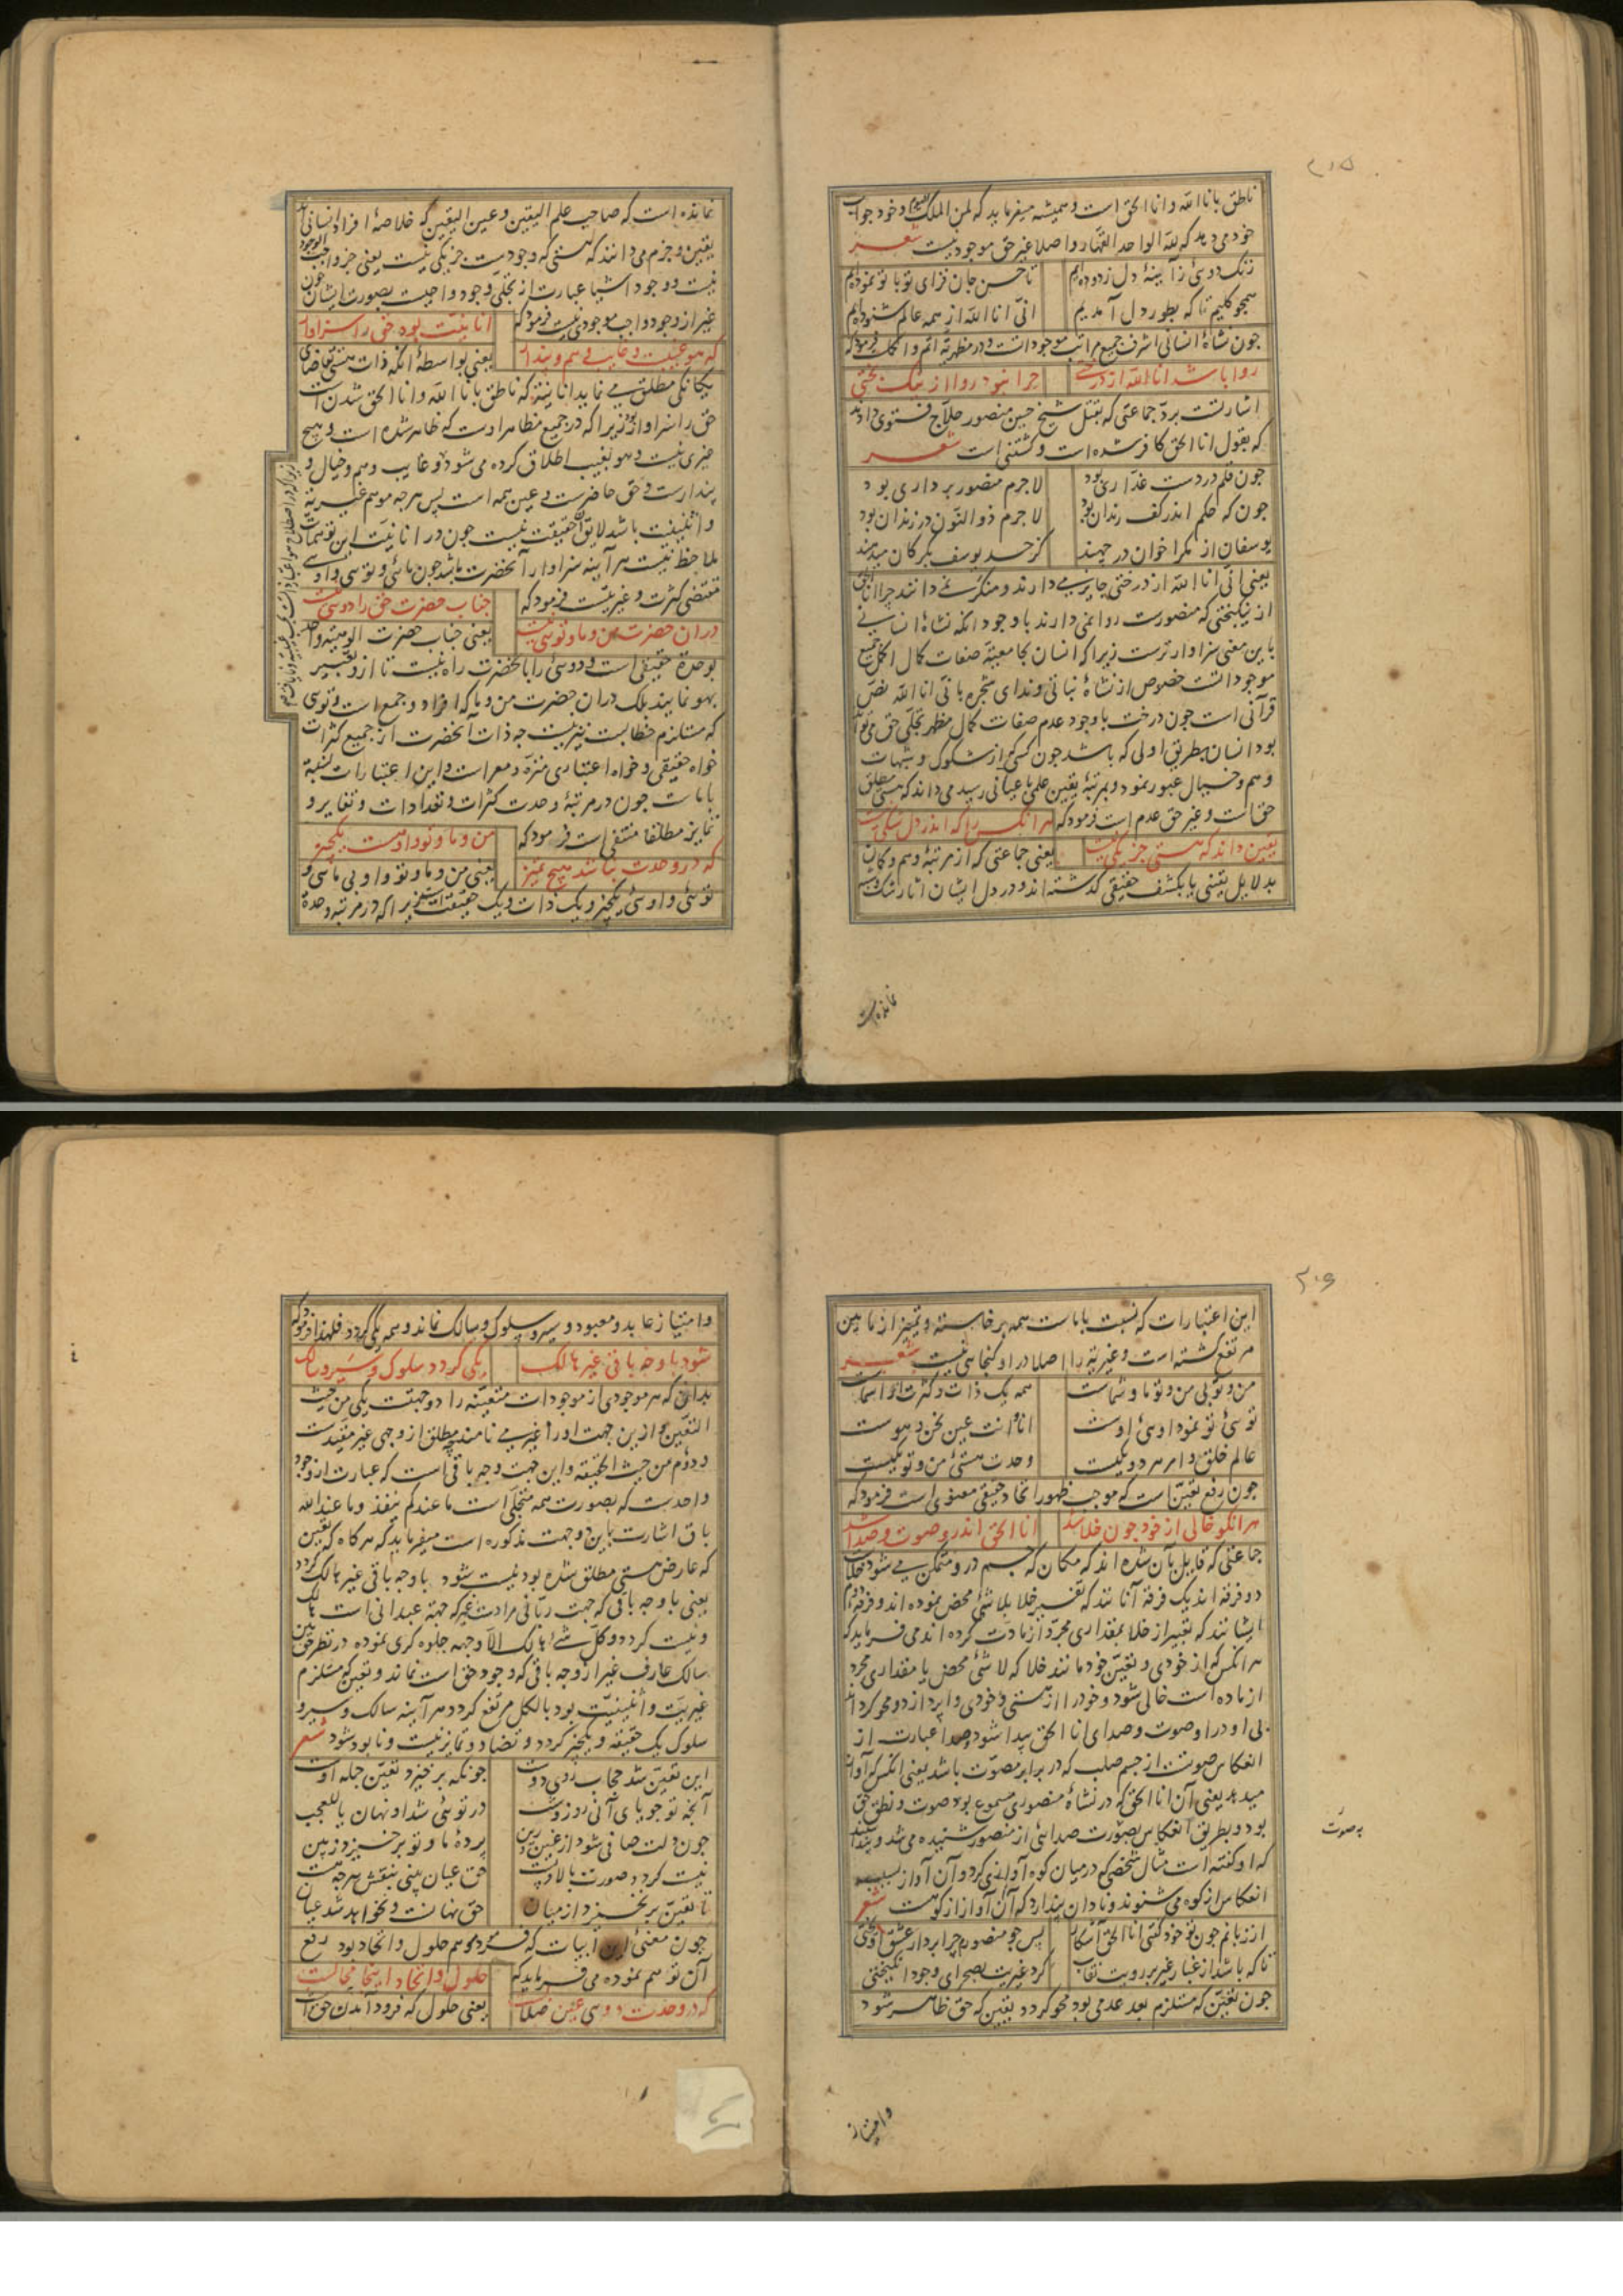 ۲۰۵
ناطق بانا الله و انا الحق است و همیشه میفرماید که لمن الملک الیوم و خود جواب
خود می دهد که لله الواحد القهار و اصلا غیر حق موجود نیست شعر
زنک دوئی ز آینهٔ دل زدوده‌ایم تا حسن جان فزای تو با تو نموده‌ایم
همچو کلیم تا که بطور دل آمدیم انی انا الله از همه عالم شنوده‌ایم
چون نشاهٔ انسانی اشرف جمیع مراتب موجوداتست و در مظهریه اتم و اکمل است فرمود که
روا باشد انا الله از درختی چرا نبود روا از نیک بختی
اشارتست برد جماعتی که بقتل شیخ حسین منصور حلاج فتوی دادند
که بقول انا الحق کافر شده است و کشتنی است شعر
چون قلم در دست غداری بود لاجرم منصور برداری بود
چون که حکم اندر کف رندان بود لاجرم ذوالنون در زندان بود
یوسفان از مکر اخوان در چهند کز حسد یوسف بگرکان میدهند
یعنی انی انا الله از درختی جایز می دارند و منکر نمی دانند چرا انا الحق
از نیکبختی که منصورست روا نمی دارند با وجود انکه نشاهٔ انسانی
باین معنی سزاوارترست زیرا که انسان بجامعیته صفات کمال اکمل جمیع
موجوداتست خصوص از نشاهٔ نباتی و ندای شجره بانی انا الله نص
قرآنی است چون درخت با وجود عدم صفات کمال مظهر تجلی حق می تواند
بود انسان بطریق اولی که باشد چون کسی از شکوک و شبهات
و هم و خیال عبور نمود و بمرتبهٔ یقین علمی یا عیانی رسید می داند که هستی مطلق
حق است و غیر حق عدم است فرمود که هر انکس را که اندر دل شکی نیست
یقین داند که هستی جز یکی نیست یعنی جماعتی که از مرتبهٔ وهم و کمان
بدلایل یقینی یا بکشف حقیقی کذشته اند و در دل ایشان اثار شک و شبهه
نمانده است
نمانده است که صاحب علم الیقین و عین الیقین که خلاصهٔ افراد انسانی اند
یقین و جزم می دانند که هستی که وجودیت جز یکی نیست یعنی جز واجب الوجود
نیست و وجود اشیا عبارت از تجلی وجود واجبست بصورت ایشان چون
غیر از وجود واجب موجودی نیست فرمود که انانیت بود حق را سزاوار
که هو غیبست و غایب وهم و پندار یعنی بواسطهٔ انکه ذات هستی تقاضای
یکانکی مطلق می نماید انانیته که ناطق بانا الله و انا الحق شدن است
حق را سزاوار بود زیرا که در جمیع مظاهر اوست که ظاهر شده است و هیچ
غیری نیست و هو بغیب اطلاق کرده می شود و غایب وهم و خیال و
پندارست و حق حاضرست و عین همه است پس هر چه موهم غیریة
و اثنینیت باشد لایق آن حقیقت نیست چون در انانیت این توهمات
ملاحظ نیست هر آینه سزاوار آنحضرت باشد چون مائی و توئی و اوئی
مقتضی کثرت و غیریتست فرمود که جناب حضرت حق را دوئی نیست
در ان حضرت من و ما و توئی نیست یعنی جناب حضرت الوهیته واحد
بوحدة حقیقی است و دوئی را بانحضرت راه نیست تا ازو تعبیر
بهو نمایند بلک در ان حضرت من و ما که افراد و جمع است و توئی
که مستلزم خطابست نیز نیست چه ذات آنحضرت از جمیع کثرات
خواه حقیقی و خواه اعتباری منزه و معراست و این اعتبارات نسبة
باماست چون در مرتبهٔ وحدت کثرات و تعدادات و تغایر و
تمایز مطلقا منتفی است فرمود که من و ما و تو و او هست یکچیز
که در وحدت نباشد هیچ تمییز یعنی من و ما و تو و او بی مائی و
توئی و اوئی یکچیز و یک ذات و یک حقیقت است زیرا که در مرتبه وحدة
۲۰۶
این اعتبارات که نسبت باماست همه برخاسته و تمیز از مابین
مرتفع کشته است و غیریة را اصلا در او کنجائی نیست شعر
من و توئی من و تو ما و شماست همه یک ذات و کثرت از اسماست
توئی تو نمود اوئی اوست انا و انت عین نحن و هوست
عالم خلق و امر هر دو یکیست وحدت هستی من و تو یکیست
چون رفع تعین است که موجب ظهور اتحاد حقیقی معنوی است فرمود که
هر انکو خالی از خود چون خلا شد انا الحق اندرو صوت و صدا شد
جماعتی که قایل بآن شده اند که مکان که جسم درو متمکن می شود خلاست
دو فرقه اند یک فرقه آنانند که تفسیر خلا بلاشئ محض نموده اند و فرقهٔ دوم
ایشانند که تعبیر از خلا بمقداری مجرد از مادت کرده اند می فرماید که
هر انکس که از خودی و تعین خود مانند خلا که لاشئ محض یا مقداری مجرد
از ماده است خالی شود و خود را از هستی و خودی وا پردازد و محو کرداند
بی او در او صوت و صدای انا الحق پیدا شود و صدا عبارت از
انعکاس صوتست از جسم صلب که در برابر مصوت باشد یعنی انکس که آواز
میدهد یعنی آن انا الحق که در نشاهٔ منصوری مسموع بود صوت و نطق حق
بود و بطریق انعکاس بصورت صدائی از منصور شنیده می شد و پندارند
که او کفته است مثال شخصی که در میان کوه آوازی کرد و آن آواز بسبب
انعکاس از کوه می شنوند و نادان پندارد که آن آواز از کوهست شعر
از زبانم چون تو خود کفتی انا الحق آشکار پس چو منصورم چرا بردار عشق آویختی
تا که باشد از غبار غیر بر رویت نقاب کرد غیریت بصحرای وجود انکیختی
چون تعین که مستلزم بعد عدمی بود محو کردد یقین که حق ظاهر شود
به صوت
وامتیاز
وامتیاز عابد و معبود و سیر و سلوک و سالک نماند و همه یکی کردد فلهذا فرمود که
شود با وجه باقی غیر هالک یکی کردد سلوک و سیر و سالک
بدانک هر موجودی از موجودات متعینه را دو جهتست یکی من حیث
التعین و ازین جهت او را غیر می نامند چه مطلق از وجهی غیر مقیدست
و دوم من حیث الحقیقه و این جهت وجه باقی است که عبارت از وجود
واحدست که بصورت همه متجلی است ما عندکم ینفد و ما عند الله
باق اشارت باین دو جهت مذکوره است میفرماید که هر کاه که تعین
که عارض هستی مطلق شده بود نیست شود با وجه باقی غیر هالک کردد
یعنی با وجه باقی که جهت ربانی مرادست غیر که جهة عبدانی است هالک
و نیست کردد و کل شئ هالک الا وجهه جلوه کری نموده در نظر حق بین
سالک عارف غیر از وجه باقی که وجود حق است نماند و تعین که مستلزم
غیریت و اثنینیت بود بالکل مرتفع کردد هر آینه سالک و سیر و
سلوک یک حقیقه و یکچیز کردد و تضاد و تمایز نیست و نابود شود شعر
این تعین شد حجاب روی دوست چونکه برخیزد تعین جمله اوست
آنچه تو جویای آنی روز و شب در توئی شد او نهان یا للعجب
چون دلت صافی شود از غین و رین پردهٔ ما و تو برخیزد ز بین
نیست کردد صورت بالا و پست حق عیان بینی بنقش هر چه هست
تا تعین برنخیزد از میان حق نهانست و نخواهد شد عیان
چون معنی این ابیات که فرمود موهم حلول و اتحاد بود رفع
آن توهم نموده می فرماید که حلول و اتحاد اینجا محالست
که در وحدت دوئی عین ضلالست یعنی حلول که فرود آمدن حق است